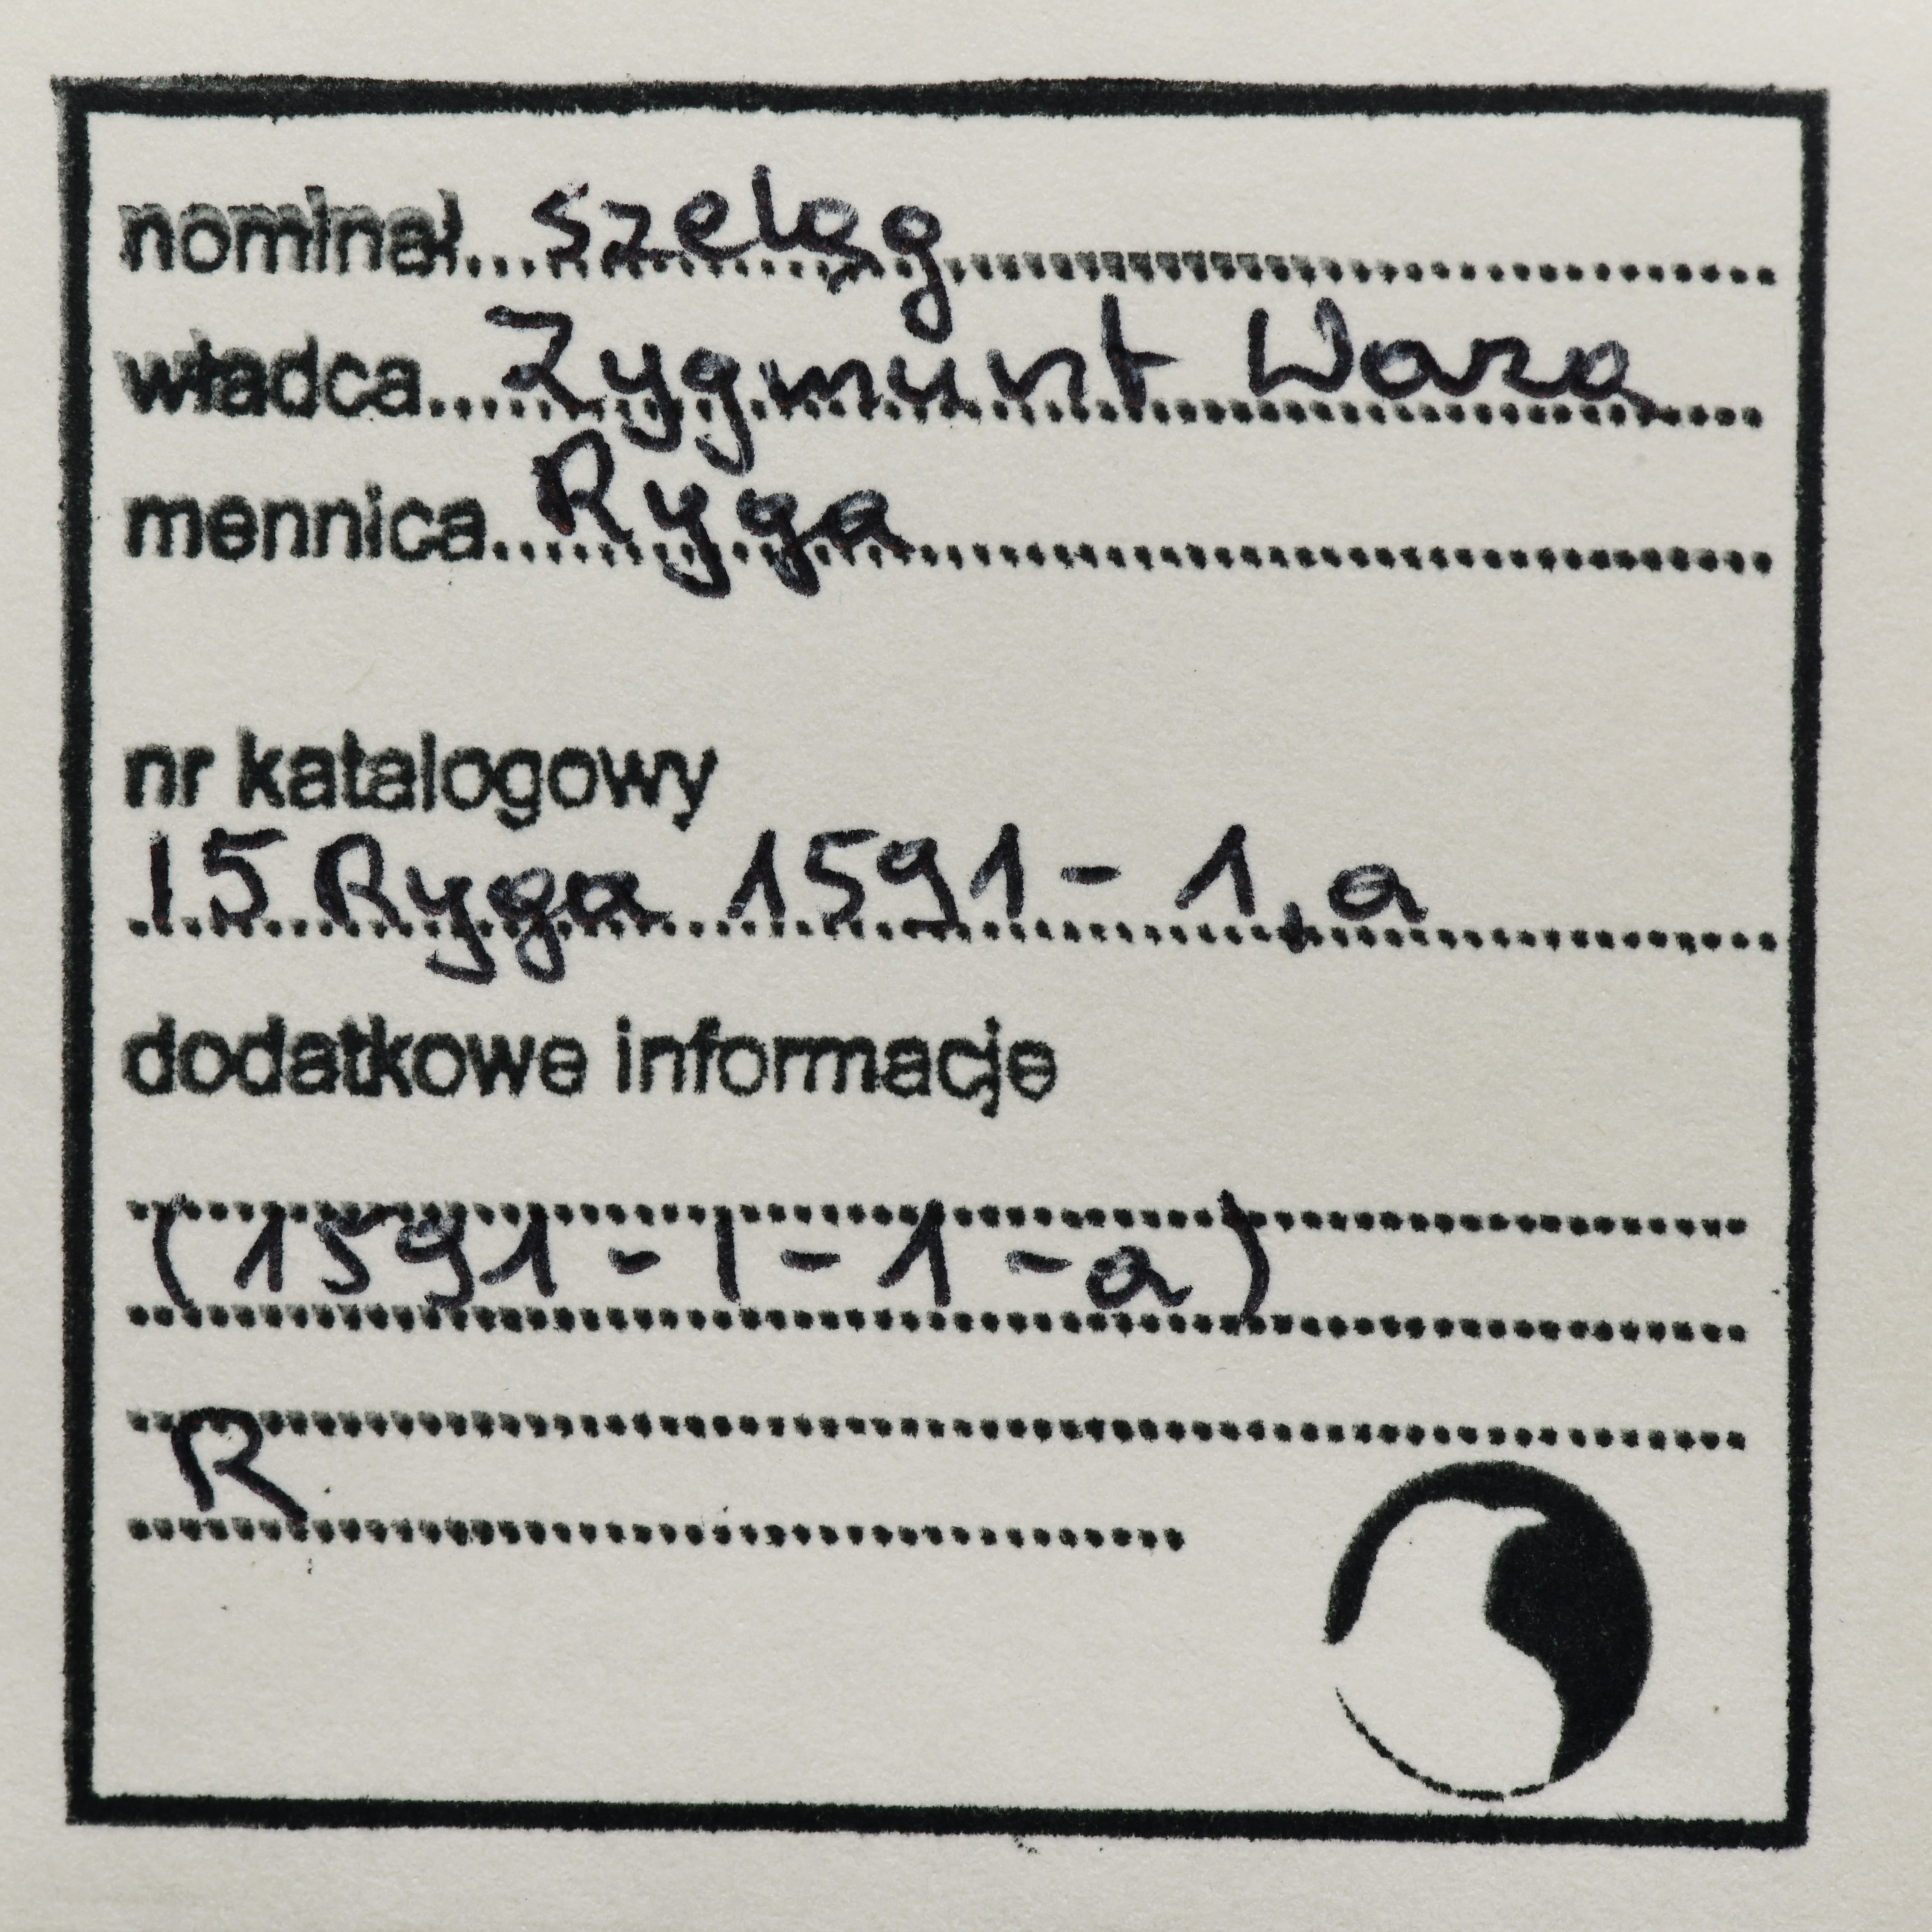 nominał szeląg
władca Zygmunt Waza
mennica Ryga
nr katalogowy
15 Ryga 1591 - 1, a
dodatkowe informacje
(1591 - 1 - 1 - a)
R